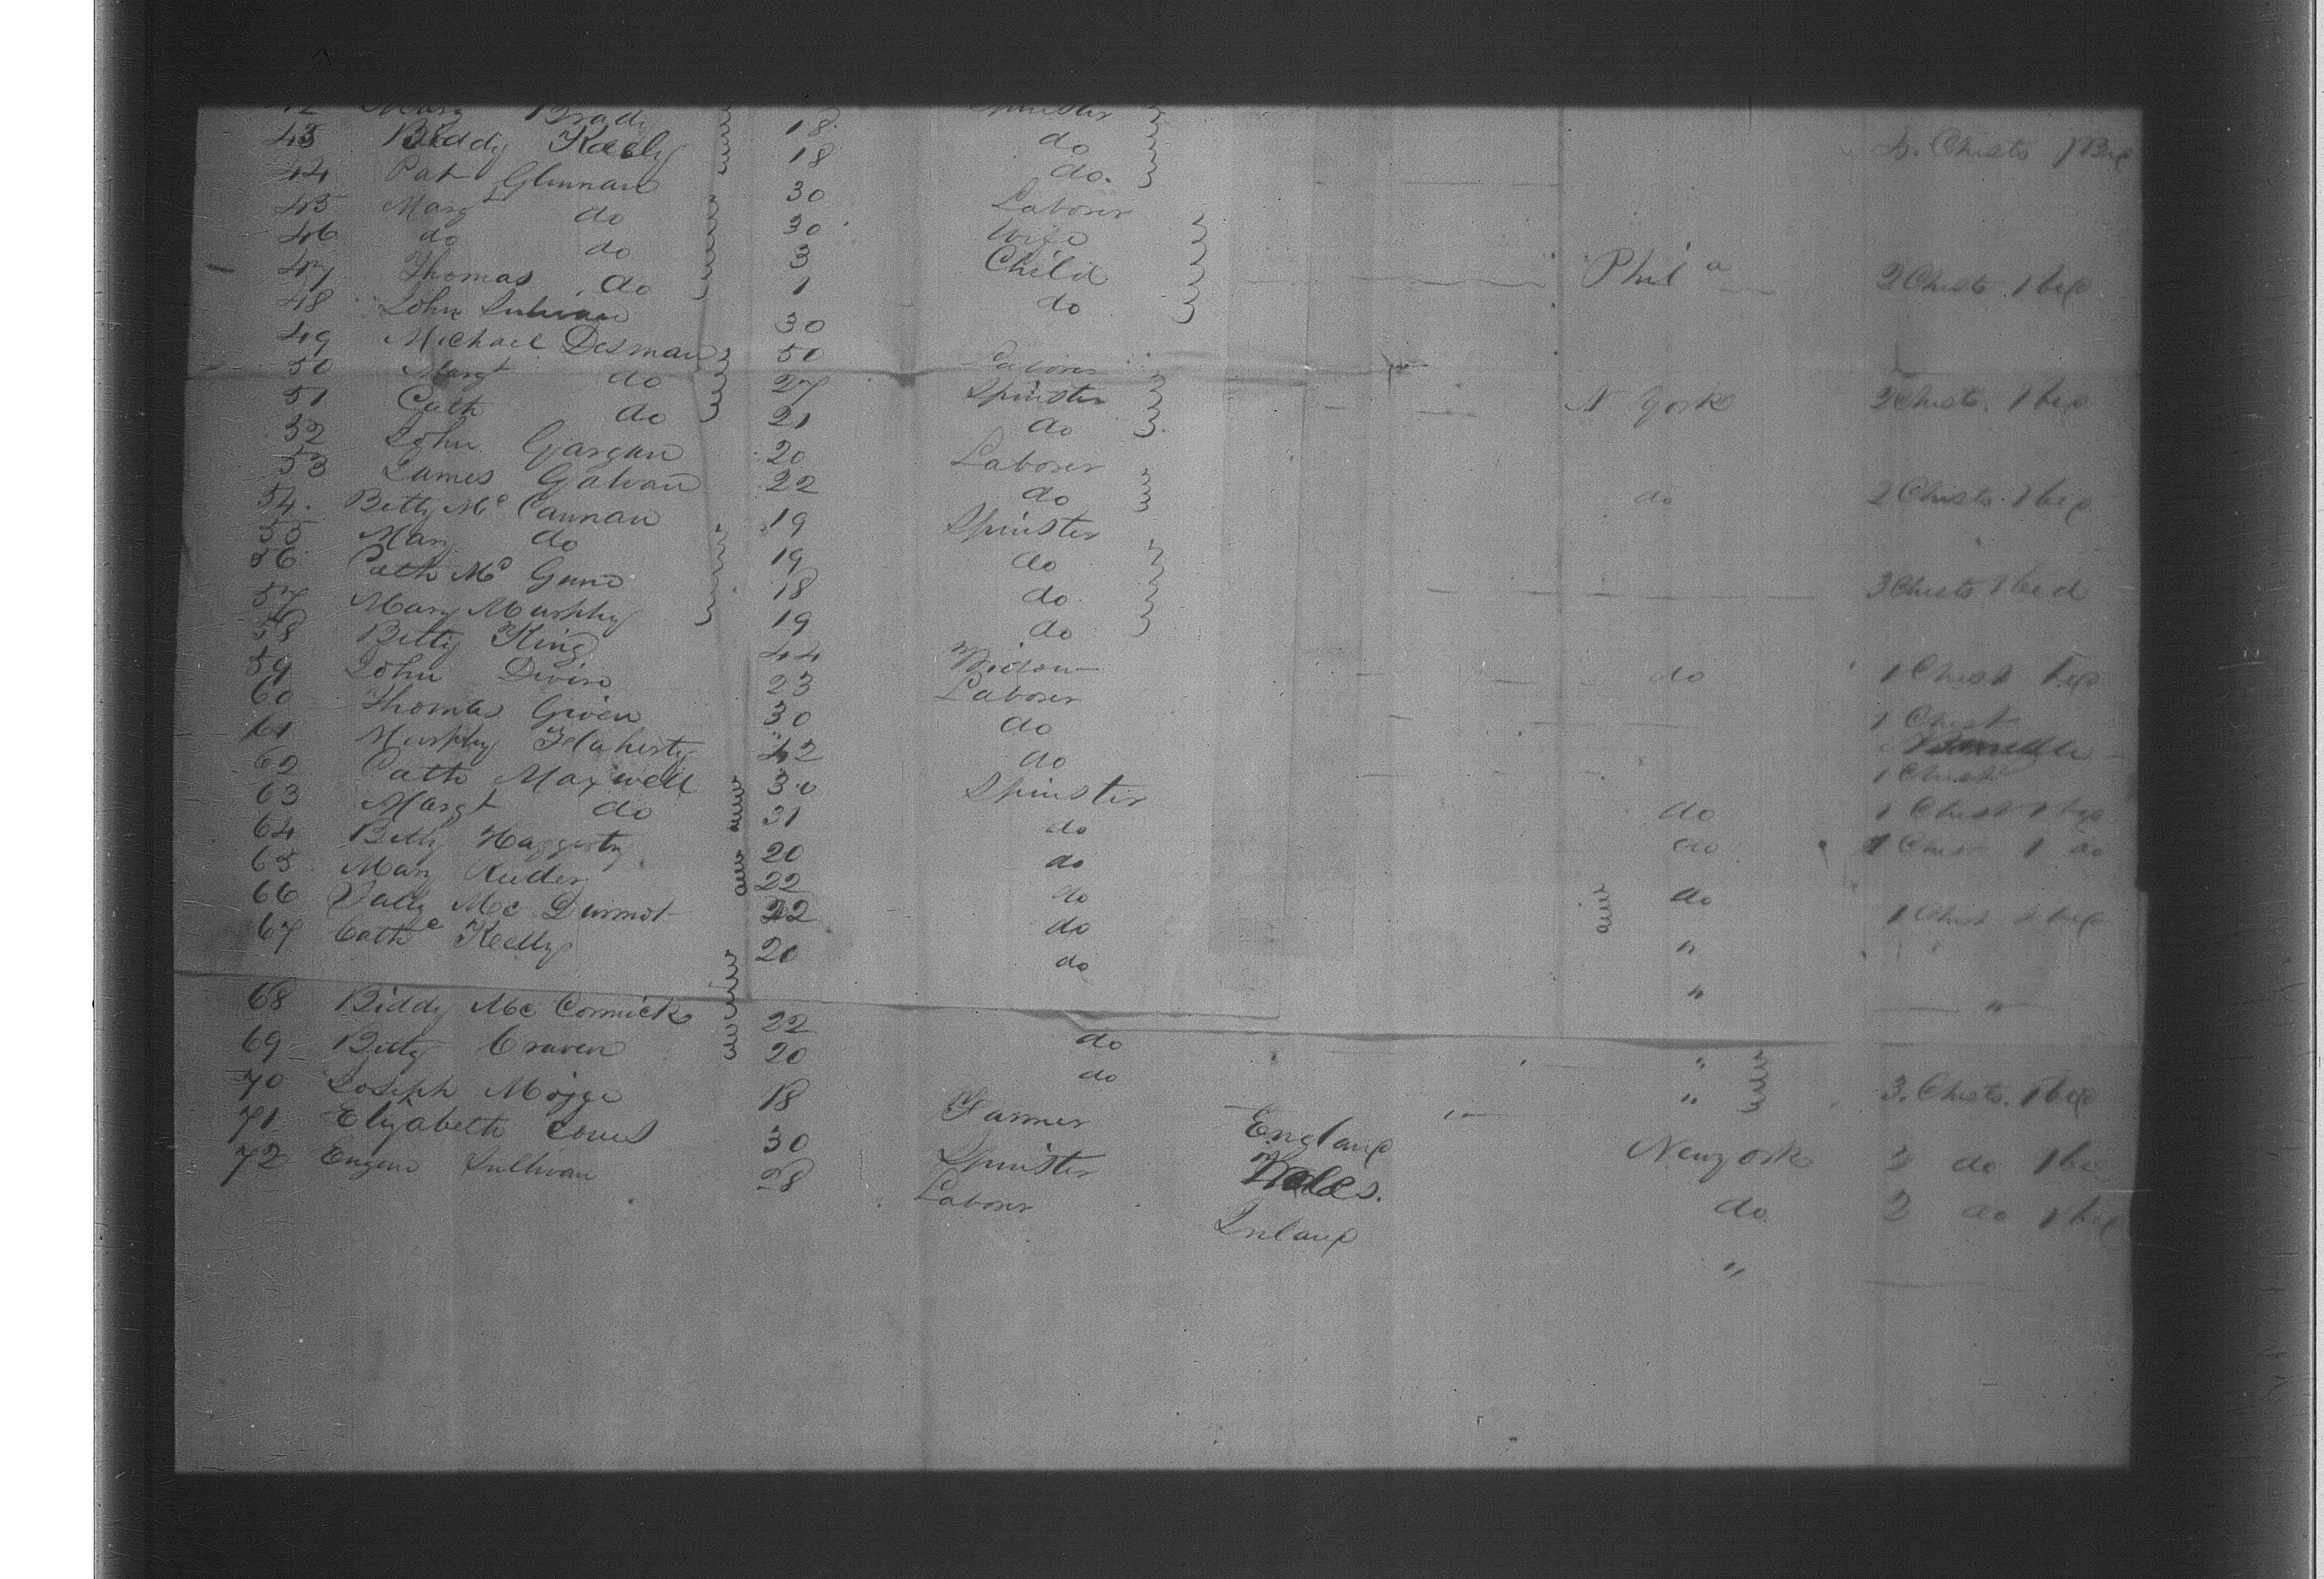 42 Mary Brady 18 Spinster
43 Biddy Keely 18 do 4. Chests 1 Bed
44 Pat Glennan 30 do.
45 Margt do 30 Laborer
46 do do 3 Wife
47 Thomas do 1 Child Phila 2 Chests 1 bed
48 John Sullivan 30 do
49 Michael Desman 50 Laborer
50 Margt do 27 Spinster N York 2 Chests. 1 bed
51 Cath do 21 do
52 John Gargan 20 Laborer
53 James Galvan 22 do do 2 Chests. 1 bed
54. Betty Mc Cannan 19 Spinster
55 Mary do 19 do
56 Cath Mc Gunn 18 do 3 Chests 1 bed
57 Mary Murphy 19 do
58 Betty King 44 Widow do 1 Chest bed
59 John Divin 23 Laborer
60 Thomas Given 30 do 1 Chest
61 Murphy Flaherty 42 do
1 Chest
62 Cath Maxwell 30 Spinster
63 Margt do 31 do do 1 Chest 1 bed
64 Betty Haggerty 20 do do 1 Chest 1 do
65 Mary Ruder 22 do do
66 Sally Mc Dermot 22 do " 1 Chest 1 bed
67 Cathe Kelly 20 do " "
68 Biddy Mc Cormick 22 do "
69 Betty Craven 20 do " 3. Chests. 1 bed
70 Joseph 18 Farmer England New york 2 do 1 bed
71 Elizabeth 30 Spinster Wales. do 2 do 1 bed
72 Eugene Sullivan 28 Laborer Ireland "